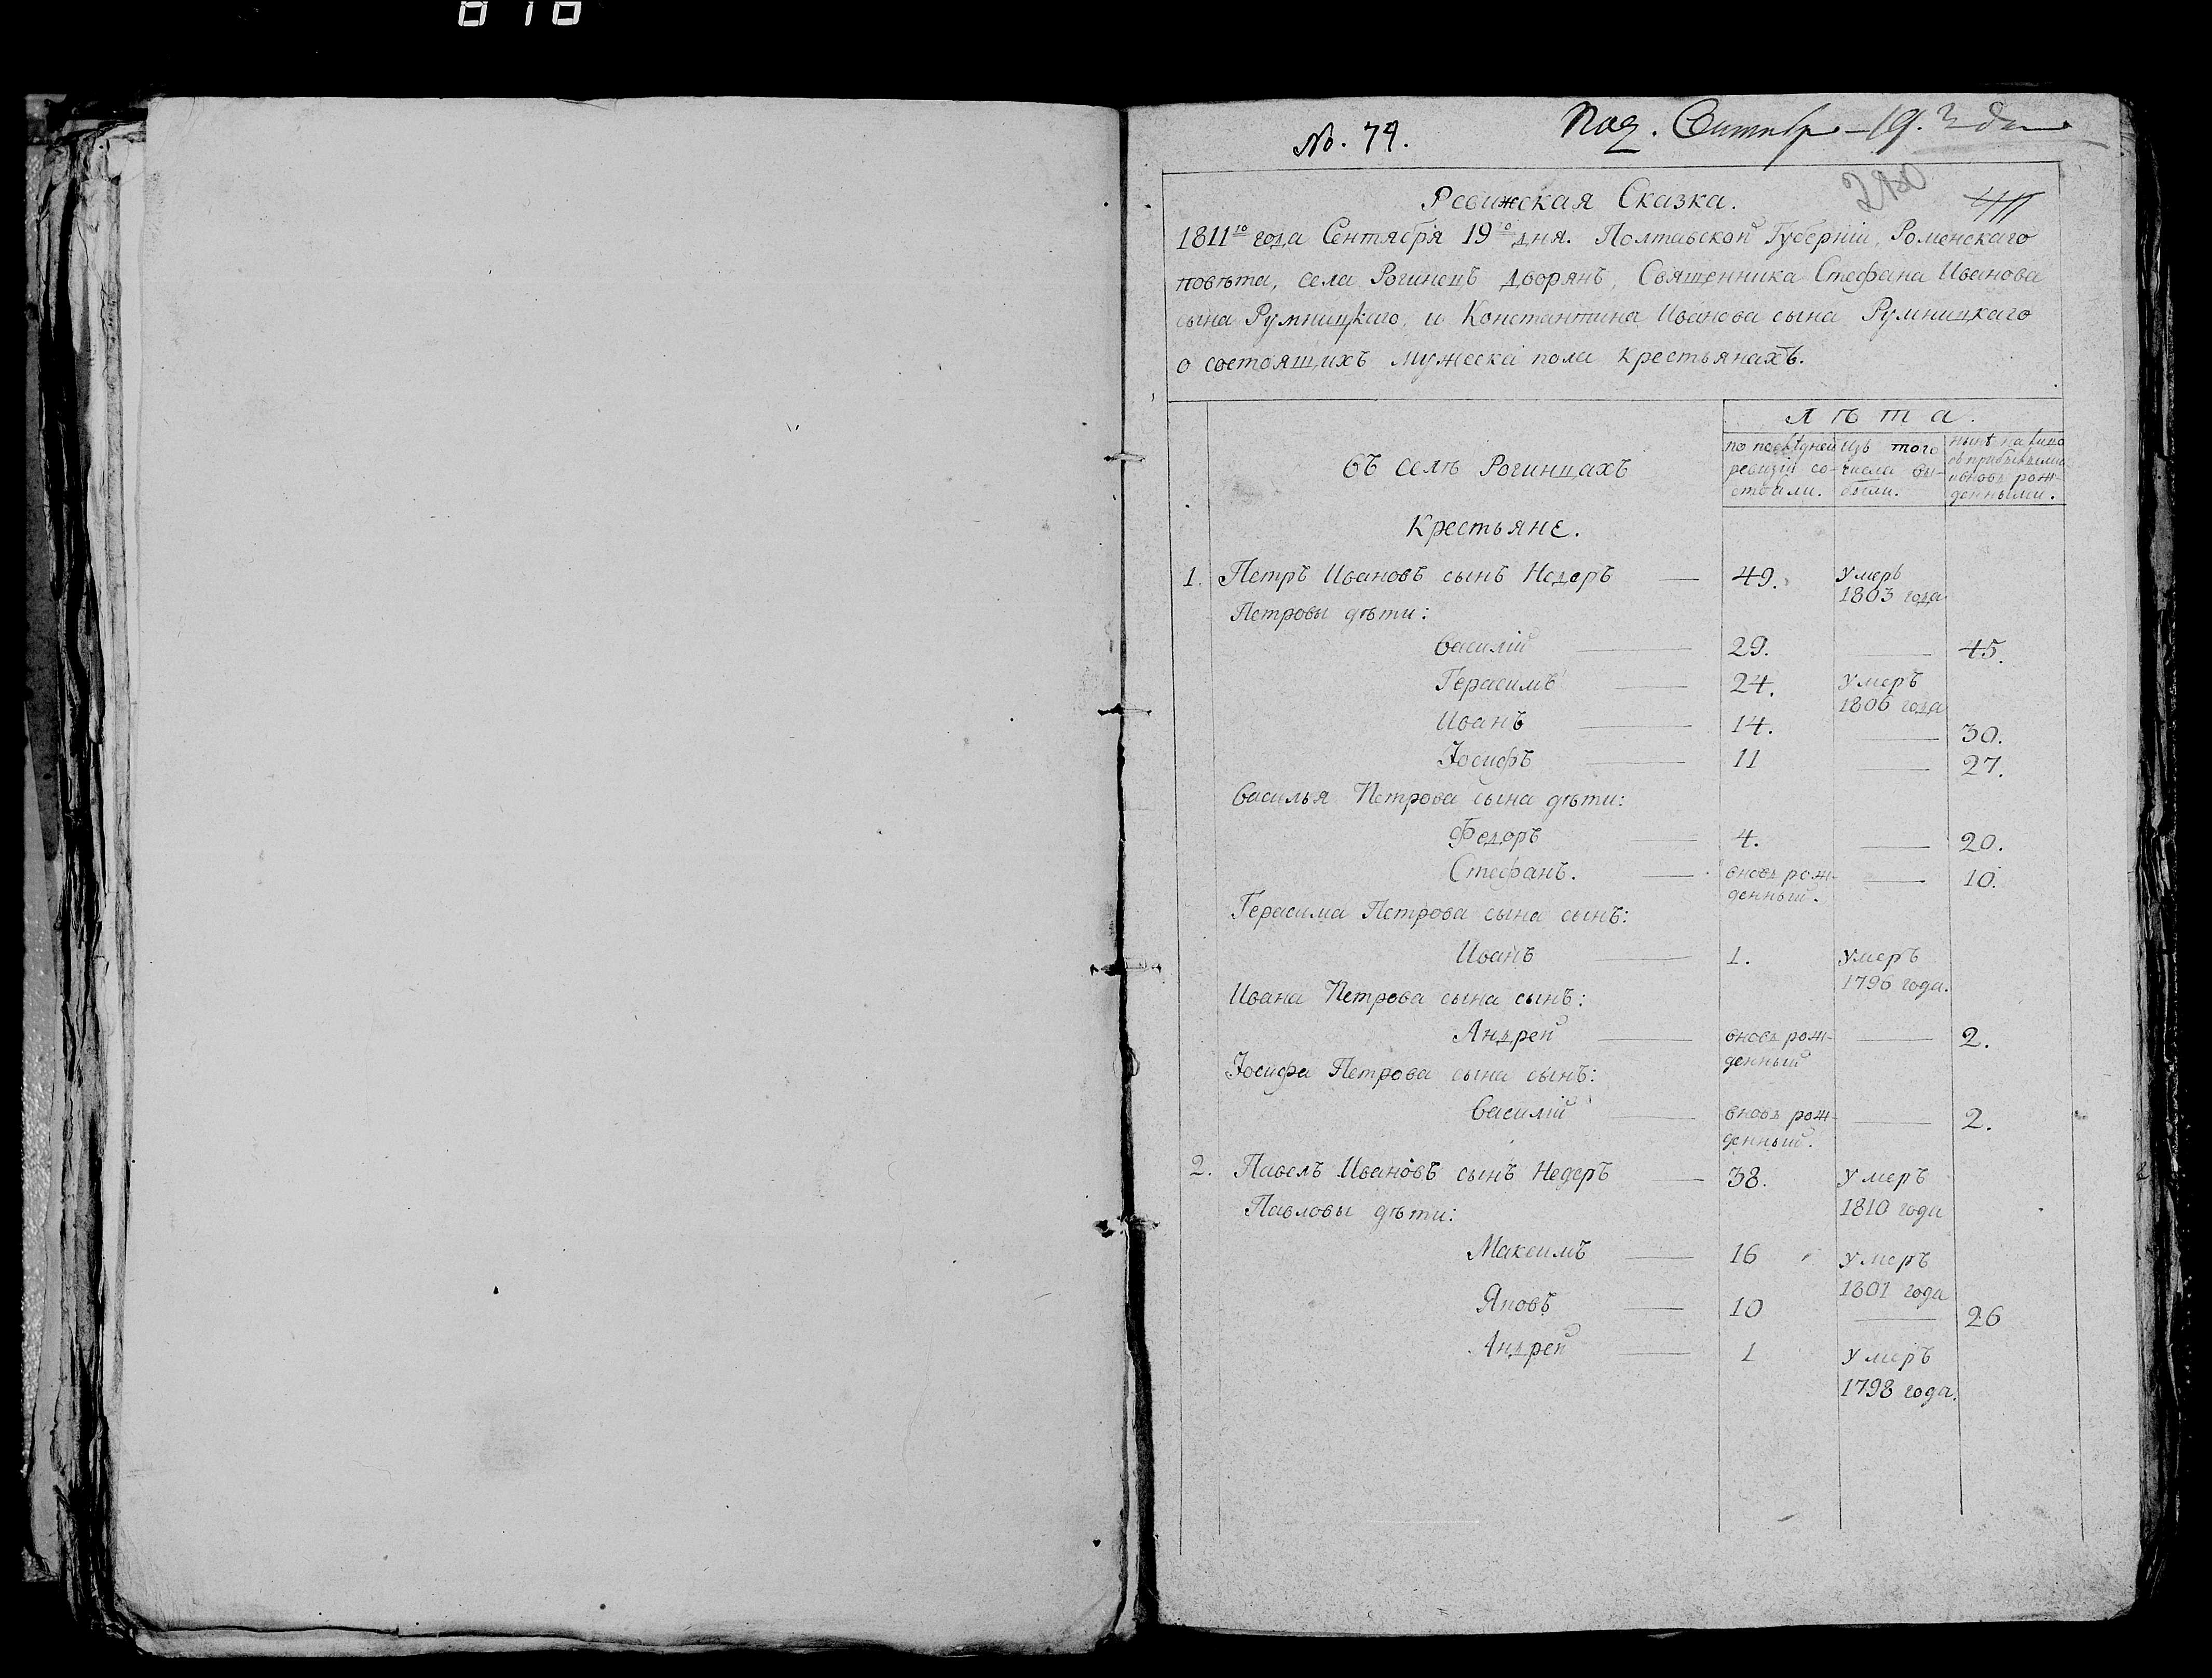 No. 74.
Под. Сентябр 19. дня
Ревижская Сказка.
1811го года Сентября 19го дня. Полтавской Губернiи, Роменскаго
повѣта, села Рогинецъ дворянъ, Священника Стефана Иванова
сына Румницкаго, и Константина Иванова сына Румницкаго
о состоящихъ мужеска пола крестьянахъ.
Лѣта.
въ селѣ Рогинцахъ
по послѣдней ревизiи состояли.
изъ того числа выбыли.
нынѣ на лицо съ прибылыми и вновь рожденными.
Крестьяне.
1. Петръ Ивановъ сынъ Недеръ — 49. умеръ
1803 года
Петровы дѣти:
Василiй — 29. — 45.
Герасимъ — 24. умеръ
1806 года
Иванъ — 14. — 30.
Iосифъ — 11 — 27.
Василья Петрова сына дѣти:
Федоръ — 4. — 20.
Стефанъ. — вновь рож- — 10.
денный.
Герасима Петрова сына сынъ:
Иванъ — 1. умеръ
1796 года.
Ивана Петрова сына сынъ:
Андрей — вновь рож- — 2.
денный
Iосифа Петрова сына сынъ:
Василiй — вновь рож- — 2.
денный.
2. Павелъ Ивановъ сынъ Недеръ — 38. умеръ
1810 года
Павловы дѣти:
Максимъ — 16 умеръ
1801 года
Яковъ — 10 — 26
Андрей — 1 умеръ
1798 года.